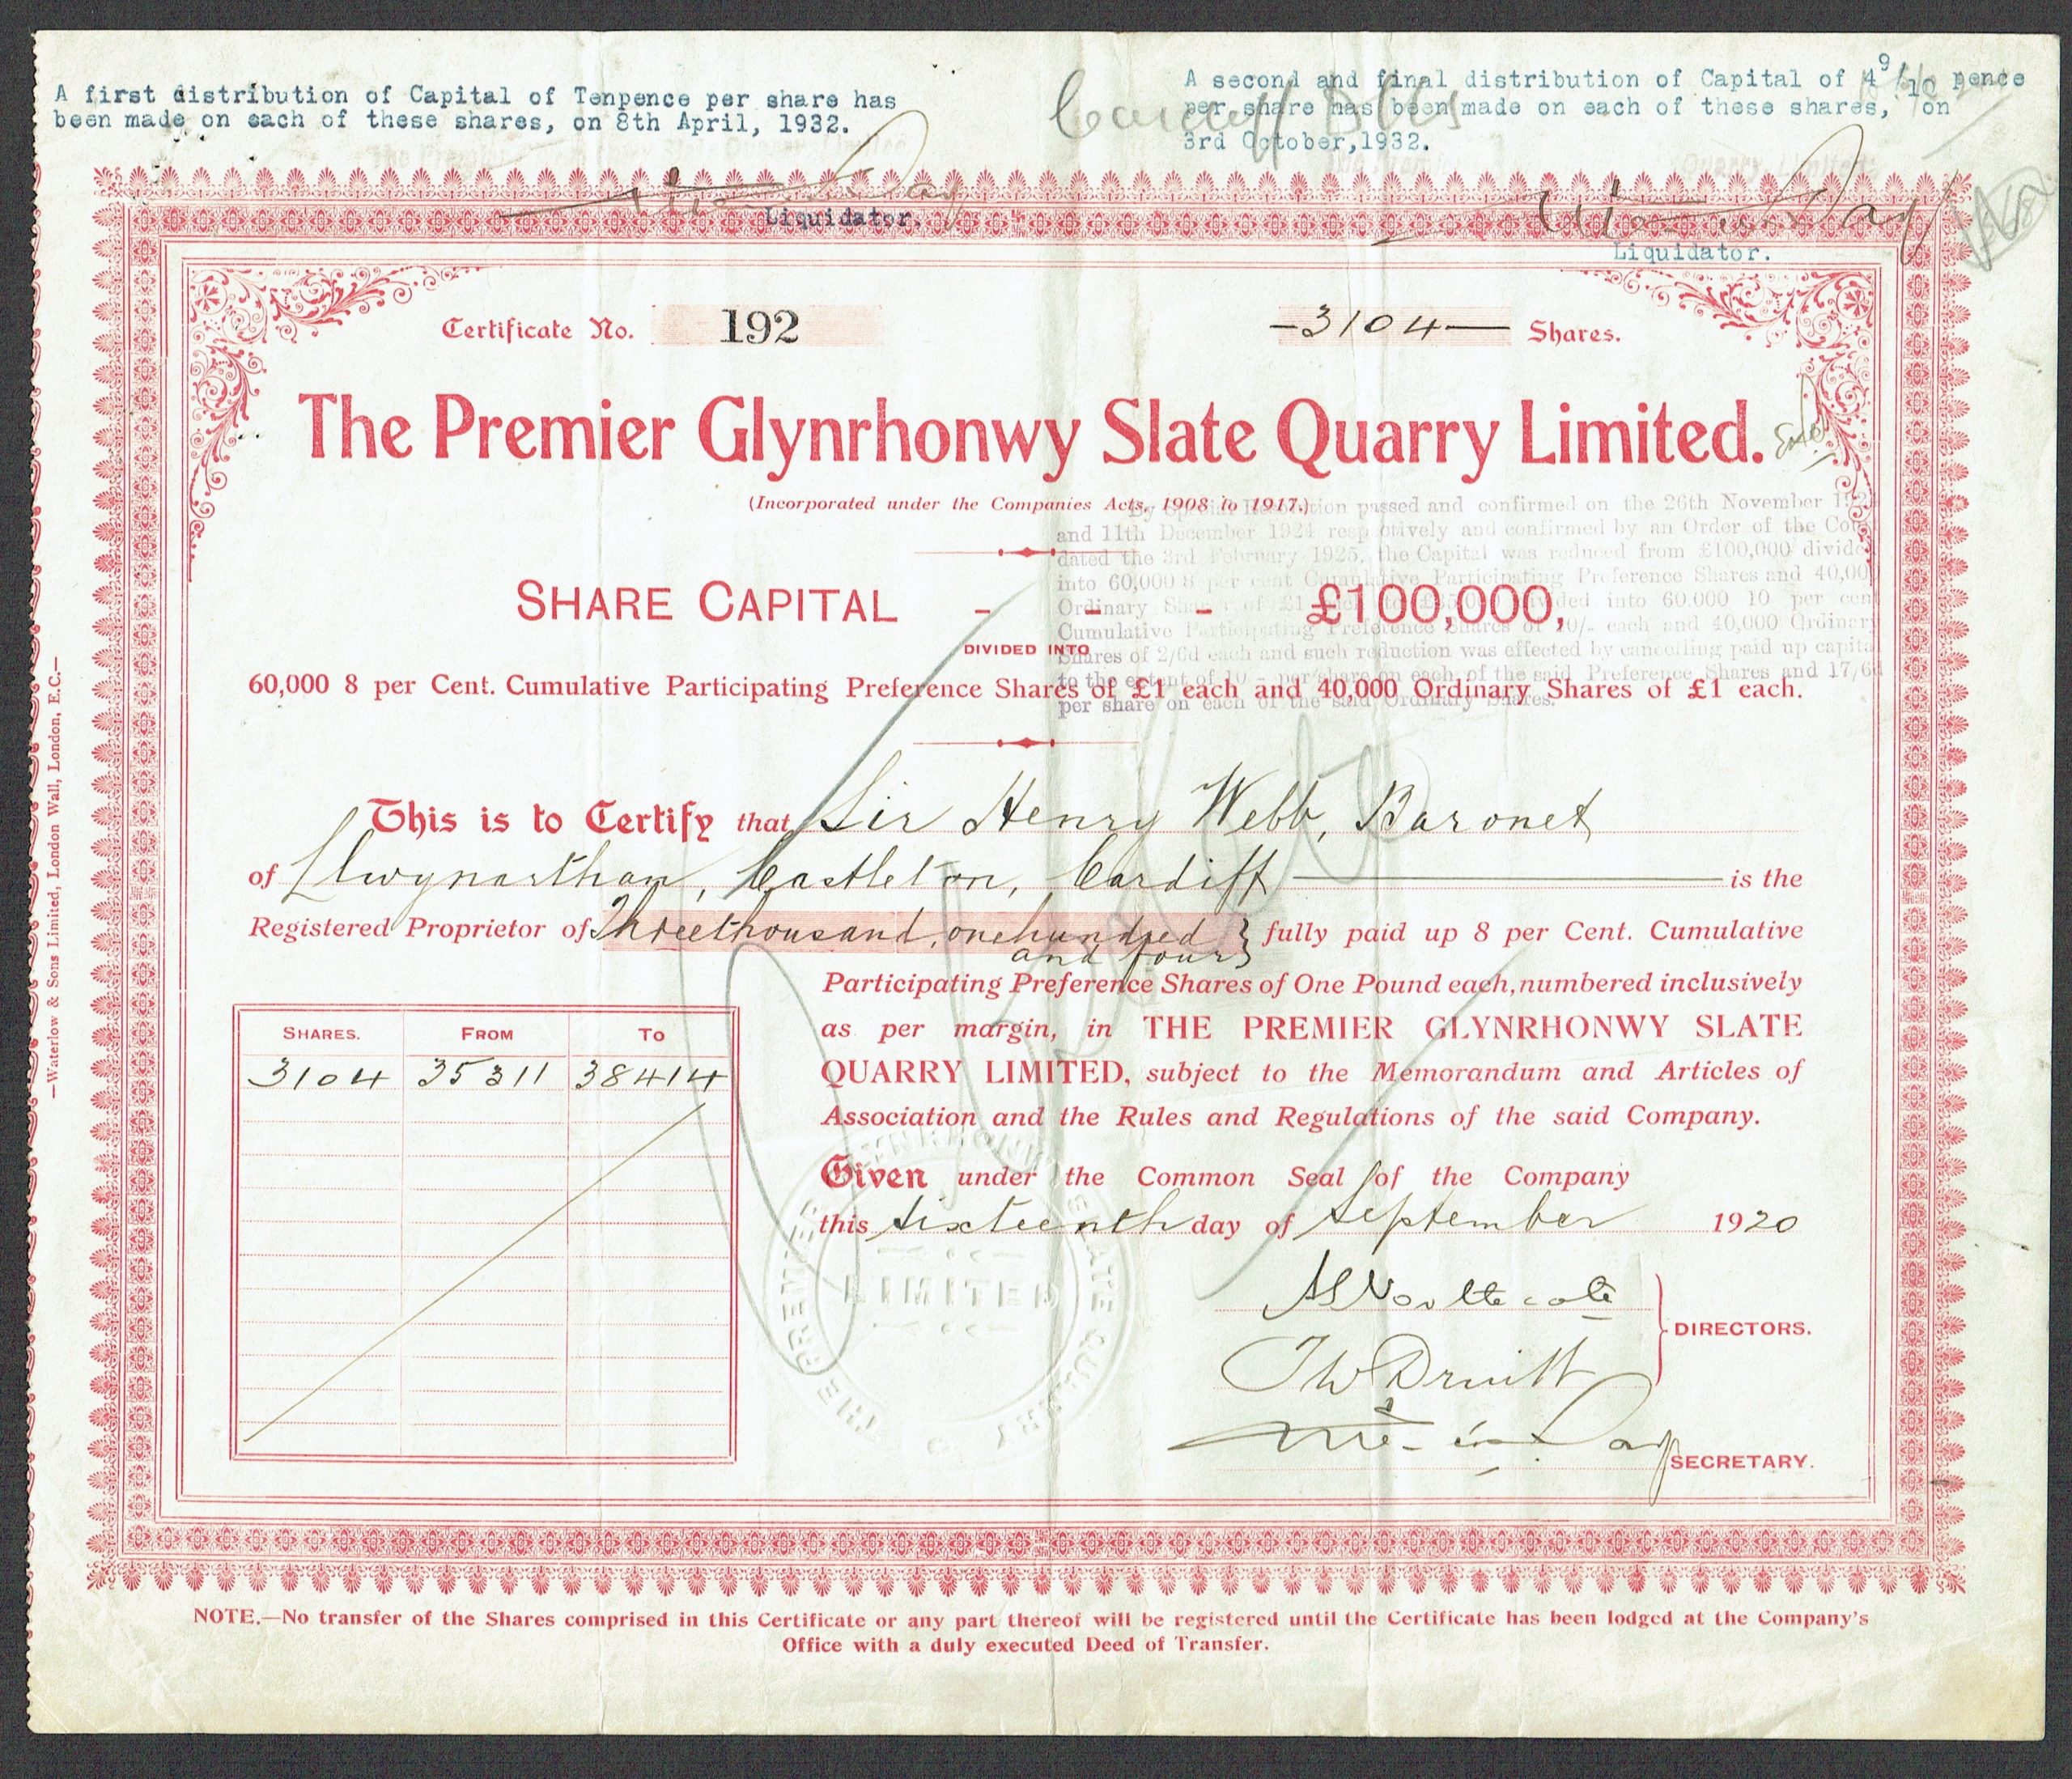 A first distribution of Capital of Tenpence per share has
been made on each of these shares, on 8th April, 1932.
Liquidator.
A second and final distribution of Capital of 4 9/10 pence
per share has been made on each of these shares, on
3rd October, 1932.
Liquidator.
Certificate No. 192
—3104— Shares.
The Premier Glynrhonwy Slate Quarry Limited.
(Incorporated under the Companies Acts, 1908 to 1917.)
By Special Resolution passed and confirmed on the 26th November
and 11th December 1924 respectively and confirmed by an Order of the
dated the 3rd February 1925, the Capital was reduced from £100,000
into 60,000 8 per cent Cumulative Participating Preference Shares and
Ordinary Shares of £1 each to divided into 60,000 10 per
Cumulative Participating Preference Shares of 10/- each and 40,000
Shares of 2/6d each and such reduction was effected by cancelling paid up
to the extent of 10/- per share on each of the said Preference Shares and 17/6
per share on each of the said Ordinary Shares.
SHARE CAPITAL - - - £100,000,
DIVIDED INTO
60,000 8 per Cent. Cumulative Participating Preference Shares of £1 each and 40,000 Ordinary Shares of £1 each.
This is to Certify that Sir Henry Webb, Baronet
of Llwynarthan, Castleton, Cardiff is the
Registered Proprietor of Three thousand, one hundred and four fully paid up 8 per Cent. Cumulative
Participating Preference Shares of One Pound each, numbered inclusively
as per margin, in THE PREMIER GLYNRHONWY SLATE
QUARRY LIMITED, subject to the Memorandum and Articles of
Association and the Rules and Regulations of the said Company.
SHARES. FROM TO
3104 35311 38414
Given under the Common Seal of the Company
this sixteenth day of September 1920
DIRECTORS.
SECRETARY.
THE PREMIER GLYNRHONWY SLATE QUARRY Co
LIMITED
NOTE.—No transfer of the Shares comprised in this Certificate or any part thereof will be registered until the Certificate has been lodged at the Company's
Office with a duly executed Deed of Transfer.
—Waterlow & Sons Limited, London Wall, London, E.C.—